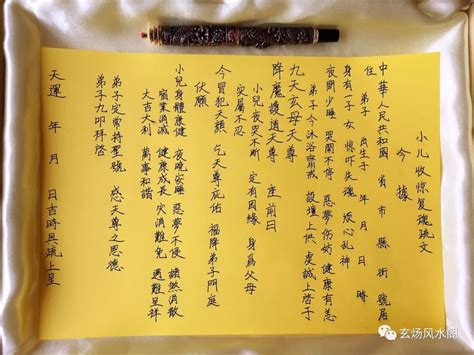 小儿收惊复魂疏文
今據
中華人民共和國 省 市 縣 街 號居
住 弟子 出生于 年 月 日 時
身有一子 女 惊吓失魂 疾心乱神
夜間少睡 哭闹不停 惡夢伤妨健康有恙
弟子今沐浴齋戒 設壇上供 虔誠上啓于
九天玄母天尊
降魔護道天尊 座前曰
小兒夜哭不断 定有因緣 身爲父母
实属不忍
今冒犯天颜 乞天尊庇佑 福降弟子門庭
伏願
小兒身體康健 夜晚安睡 惡夢不侵 諸煞消散
宿業消减 健康成長 灾消難免 遇難呈祥
大吉大利 萬事和諧
弟子定常持聖號 感天尊之恩德
弟子九叩拜啓
天運 年 月 日吉時具疏上呈
玄炀风水阁